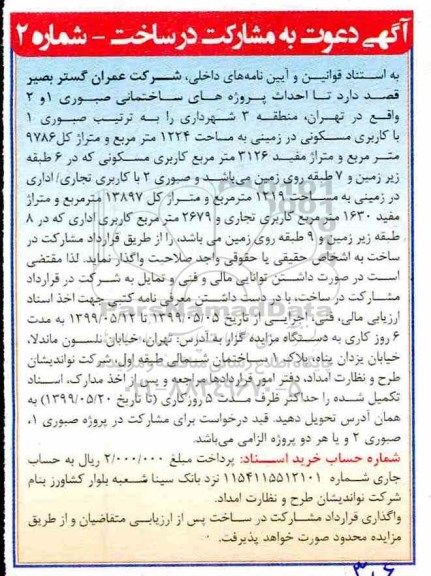 آگهی دعوت به مشارکت در ساخت - شماره ۲
به استناد قوانین و آیین نامه‌های داخلی، شرکت عمران گستر بصیر
قصد دارد تا احداث پروژه های ساختمانی صبوری ۱ و ۲
واقع در تهران، منطقه ۳ شهرداری را به ترتیب صبوری ۱
با کاربری مسکونی در زمینی به مساحت ۱۲۲۴ متر مربع و متراژ کل ۹۷۸۶
متر مربع و متراژ مفید ۳۱۲۶ متر مربع کاربری مسکونی که در ۶ طبقه
زیر زمین و ۷ طبقه روی زمین می‌باشد و صبوری ۲ با کاربری تجاری/ اداری
در زمینی به مساحت ۱۳۱۹ مترمربع و متراژ کل ۱۳۸۹۷ مترمربع و متراژ
مفید ۱۶۳۰ متر مربع کاربری تجاری و ۲۶۷۹ متر مربع کاربری اداری که در ۸
طبقه زیر زمین و ۹ طبقه روی زمین می باشد، را از طریق قرارداد مشارکت در
ساخت به اشخاص حقیقی یا حقوقی واجد صلاحیت واگذار نماید. لذا مقتضی
است در صورت داشتن توانایی مالی و فنی و تمایل به شرکت در قرارداد
مشارکت در ساخت، با در دست داشتن معرفی نامه کتبی جهت اخذ اسناد
ارزیابی مالی، فنی، اجرایی از تاریخ ۱۳۹۹/۰۵/۰۵ تا ۱۳۹۹/۰۵/۱۲ به مدت
۶ روز کاری به دستگاه مزایده گزار به آدرس: تهران، خیابان نلسون ماندلا،
خیابان یزدان پناه، پلاک ۱ ساختمان شمالی طبقه اول، شرکت نواندیشان
طرح و نظارت امداد، دفتر امور قراردادها مراجعه و پس از اخذ مدارک، اسناد
تکمیل شده را حداکثر ظرف مدت ۵ روزکاری (تا تاریخ ۱۳۹۹/۰۵/۲۰) به
همان آدرس تحویل دهید. قید درخواست برای مشارکت در پروژه صبوری ۱،
صبوری ۲ و یا هر دو پروژه الزامی می‌باشد.
شماره حساب خرید اسناد: پرداخت مبلغ ۲/۰۰۰/۰۰۰ ریال به حساب
جاری شماره ۱۱۵۴۱۱۵۵۱۲۱۰۱ نزد بانک سینا شعبه بلوار کشاورز بنام
شرکت نواندیشان طرح و نظارت امداد.
واگذاری قرارداد مشارکت در ساخت پس از ارزیابی متقاضیان و از طریق
مزایده محدود صورت خواهد پذیرفت.